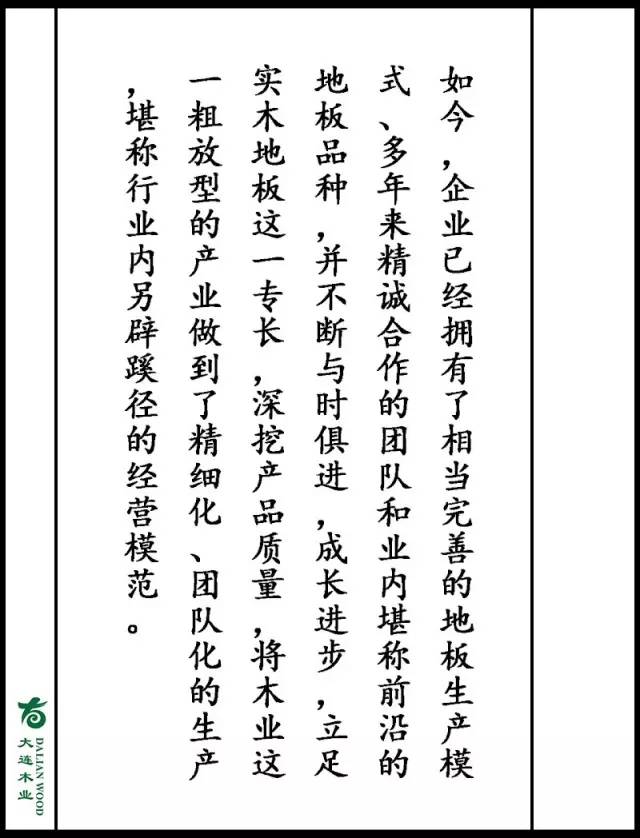 如今，企业已经拥有了相当完善的地板生产模
式、多年来精诚合作的团队和业内堪称前沿的
地板品种，并不断与时俱进，成长进步，立足
实木地板这一专长，深挖产品质量，将木业这
一粗放型的产业做到了精细化、团队化的生产
，堪称行业内另辟蹊径的经营模范。
大连木业
DALIAN WOOD